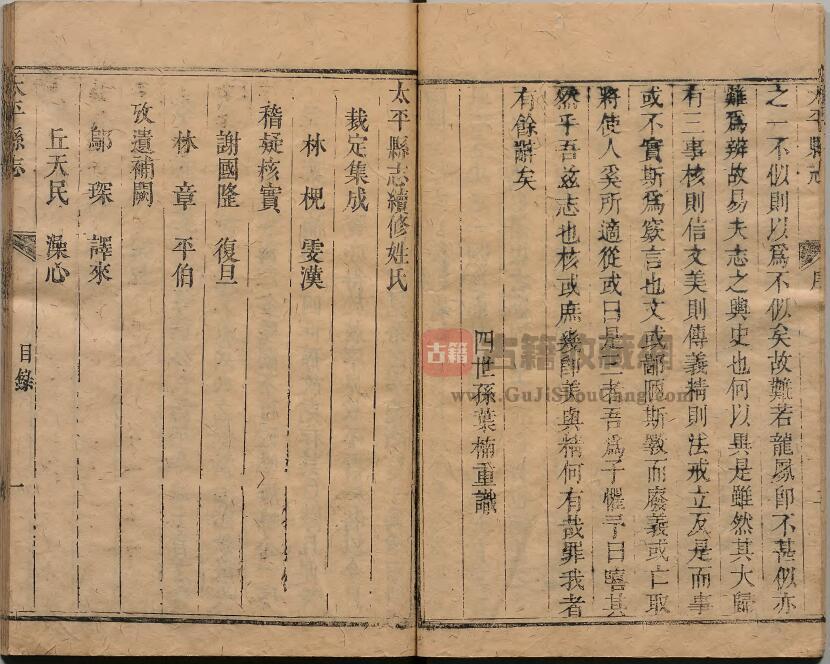 太平縣志
序
二
之一不似則以爲不似矣故難若龍鳳即不甚似亦
難爲辨故易夫志之與史也何以異是雖然其大歸
有三事核則信文美則傳義精則法戒立反是而事
或不實斯爲窽言也文或鄙陋斯斁而廢義或亡取
將使人奚所適從或曰是三者吾爲子懼予曰嘻其
然乎吾兹志也核或庶幾即美與精何有哉罪我者
有餘辭矣
四世孫葉楠重識
太平縣志續修姓氏
裁定集成
林 棿 雯漢
稽疑核實
謝國隆 復旦
林 章 平伯
攷遺補闕
鄔 琛 譯來
丘天民 藻心
太平縣志
目錄
一
古籍 古籍收藏網
www.GuJiShouCang.com